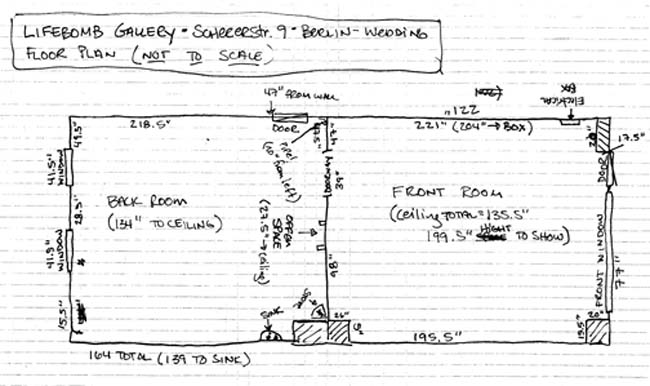 LIFEBOMB GALLERY - SCHERERSTR. 9 - BERLIN-WEDDING
FLOOR PLAN (NOT TO SCALE)
47" FROM WALL
ELECTRICAL
BOX
221"
218.5"
DOOR
221" (204" → BOX)
17.5"
49.5"
PIPE!
(10" from left)
DOOR
41.5"
WINDOW
DOORWAY
39"
BACK ROOM
(134" TO CEILING)
FRONT ROOM
(ceiling TOTAL = 135.5"
199.5" HIGHT TO SHOW)
28.5"
OPEN
SPACE
(22.5" → ceiling)
98"
41.5"
WINDOW
FRONT WINDOW
77"
15.5"
SINK
26"
20"
19.5"
195.5"
164 TOTAL (139 TO SINK)